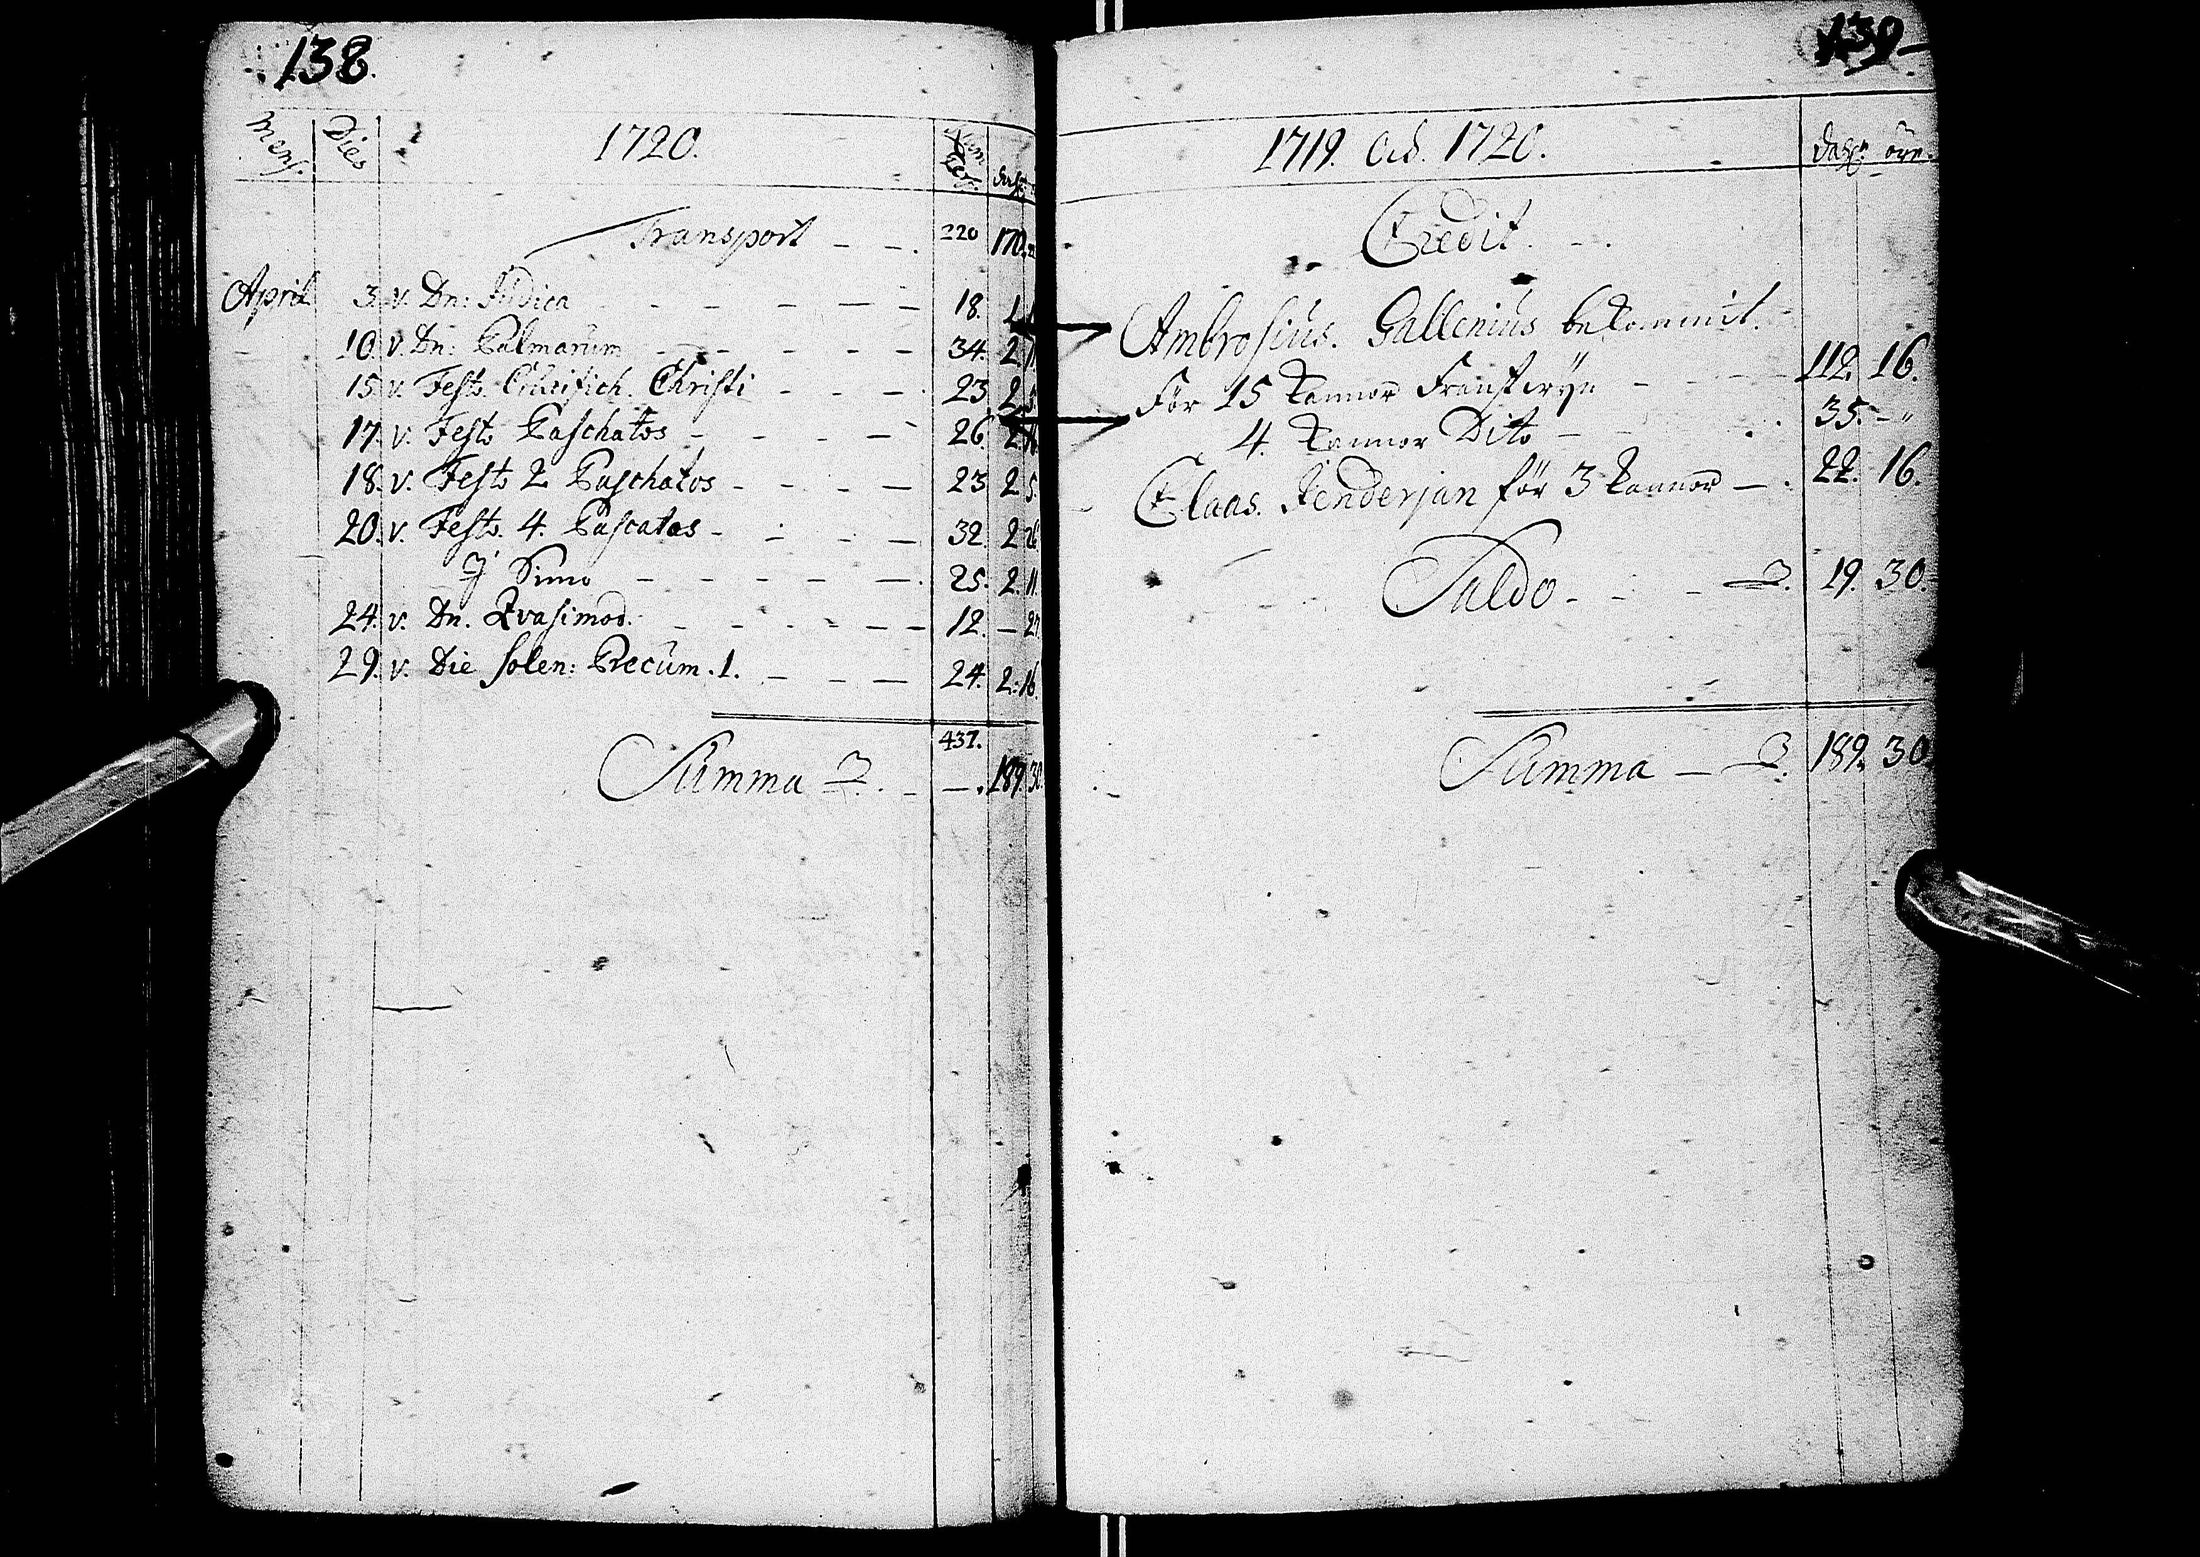 138.
Mens. Dies 1720. Num dal
Transport - - . 220 170.
April 3. v. Dn: Judica - - - - 18. 1.
10. v. Dn: Palmarum - - - - 34. 2
15. v. Festo Crucifich. Christi - - - 23 2 5
17. v. Festo Paschatos - - - - 26. 2
18. v. Festo 2 Paschatos - - - - 23 2 5.
20. v. Festo. 4. Pascatos - - - - 32. 2 26
J Simo - - - - - 25. 2. 11.
24. v. Dn. Qvasimod. - - - - - 12. — 27
29. v. Die solen: Precum. 1. - - - 24. 2. 16.
437.
Summa - - . 189. 30.
139
1719. Ad. 1720. dalr öre.
Credit. - .
Ambrosius. Gallenius bekommit.
För 15 kannor Franst wÿn - - - - 112. 16.
4. kannor Dito - - . 35. - "
Claas. Henderjan för 3 kannor - . 22. 16.
Saldo - - - 19. 30.
Summa - 189. 30